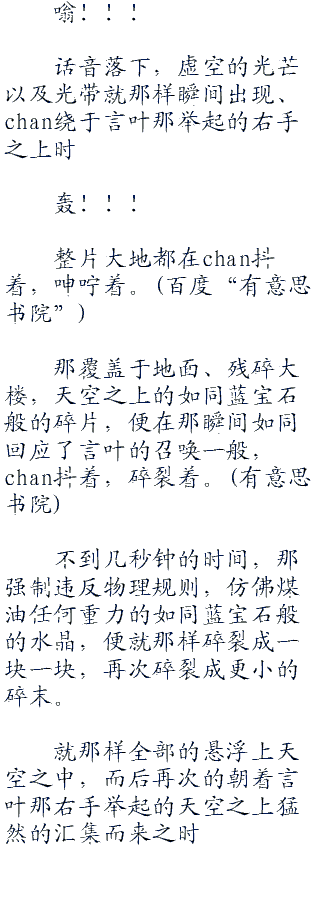 嗡！！！
话音落下，虚空的光芒
以及光带就那样瞬间出现、
chan绕于言叶那举起的右手
之上时
轰！！！
整片大地都在chan抖
着，呻咛着。(百度“有意思
书院”)
那覆盖于地面、残碎大
楼，天空之上的如同蓝宝石
般的碎片，便在那瞬间如同
回应了言叶的召唤一般，
chan抖着，碎裂着。(有意思
书院)
不到几秒钟的时间，那
强制违反物理规则，仿佛煤
油任何重力的如同蓝宝石般
的水晶，便就那样碎裂成一
块一块，再次碎裂成更小的
碎末。
就那样全部的悬浮上天
空之中，而后再次的朝着言
叶那右手举起的天空之上猛
然的汇集而来之时